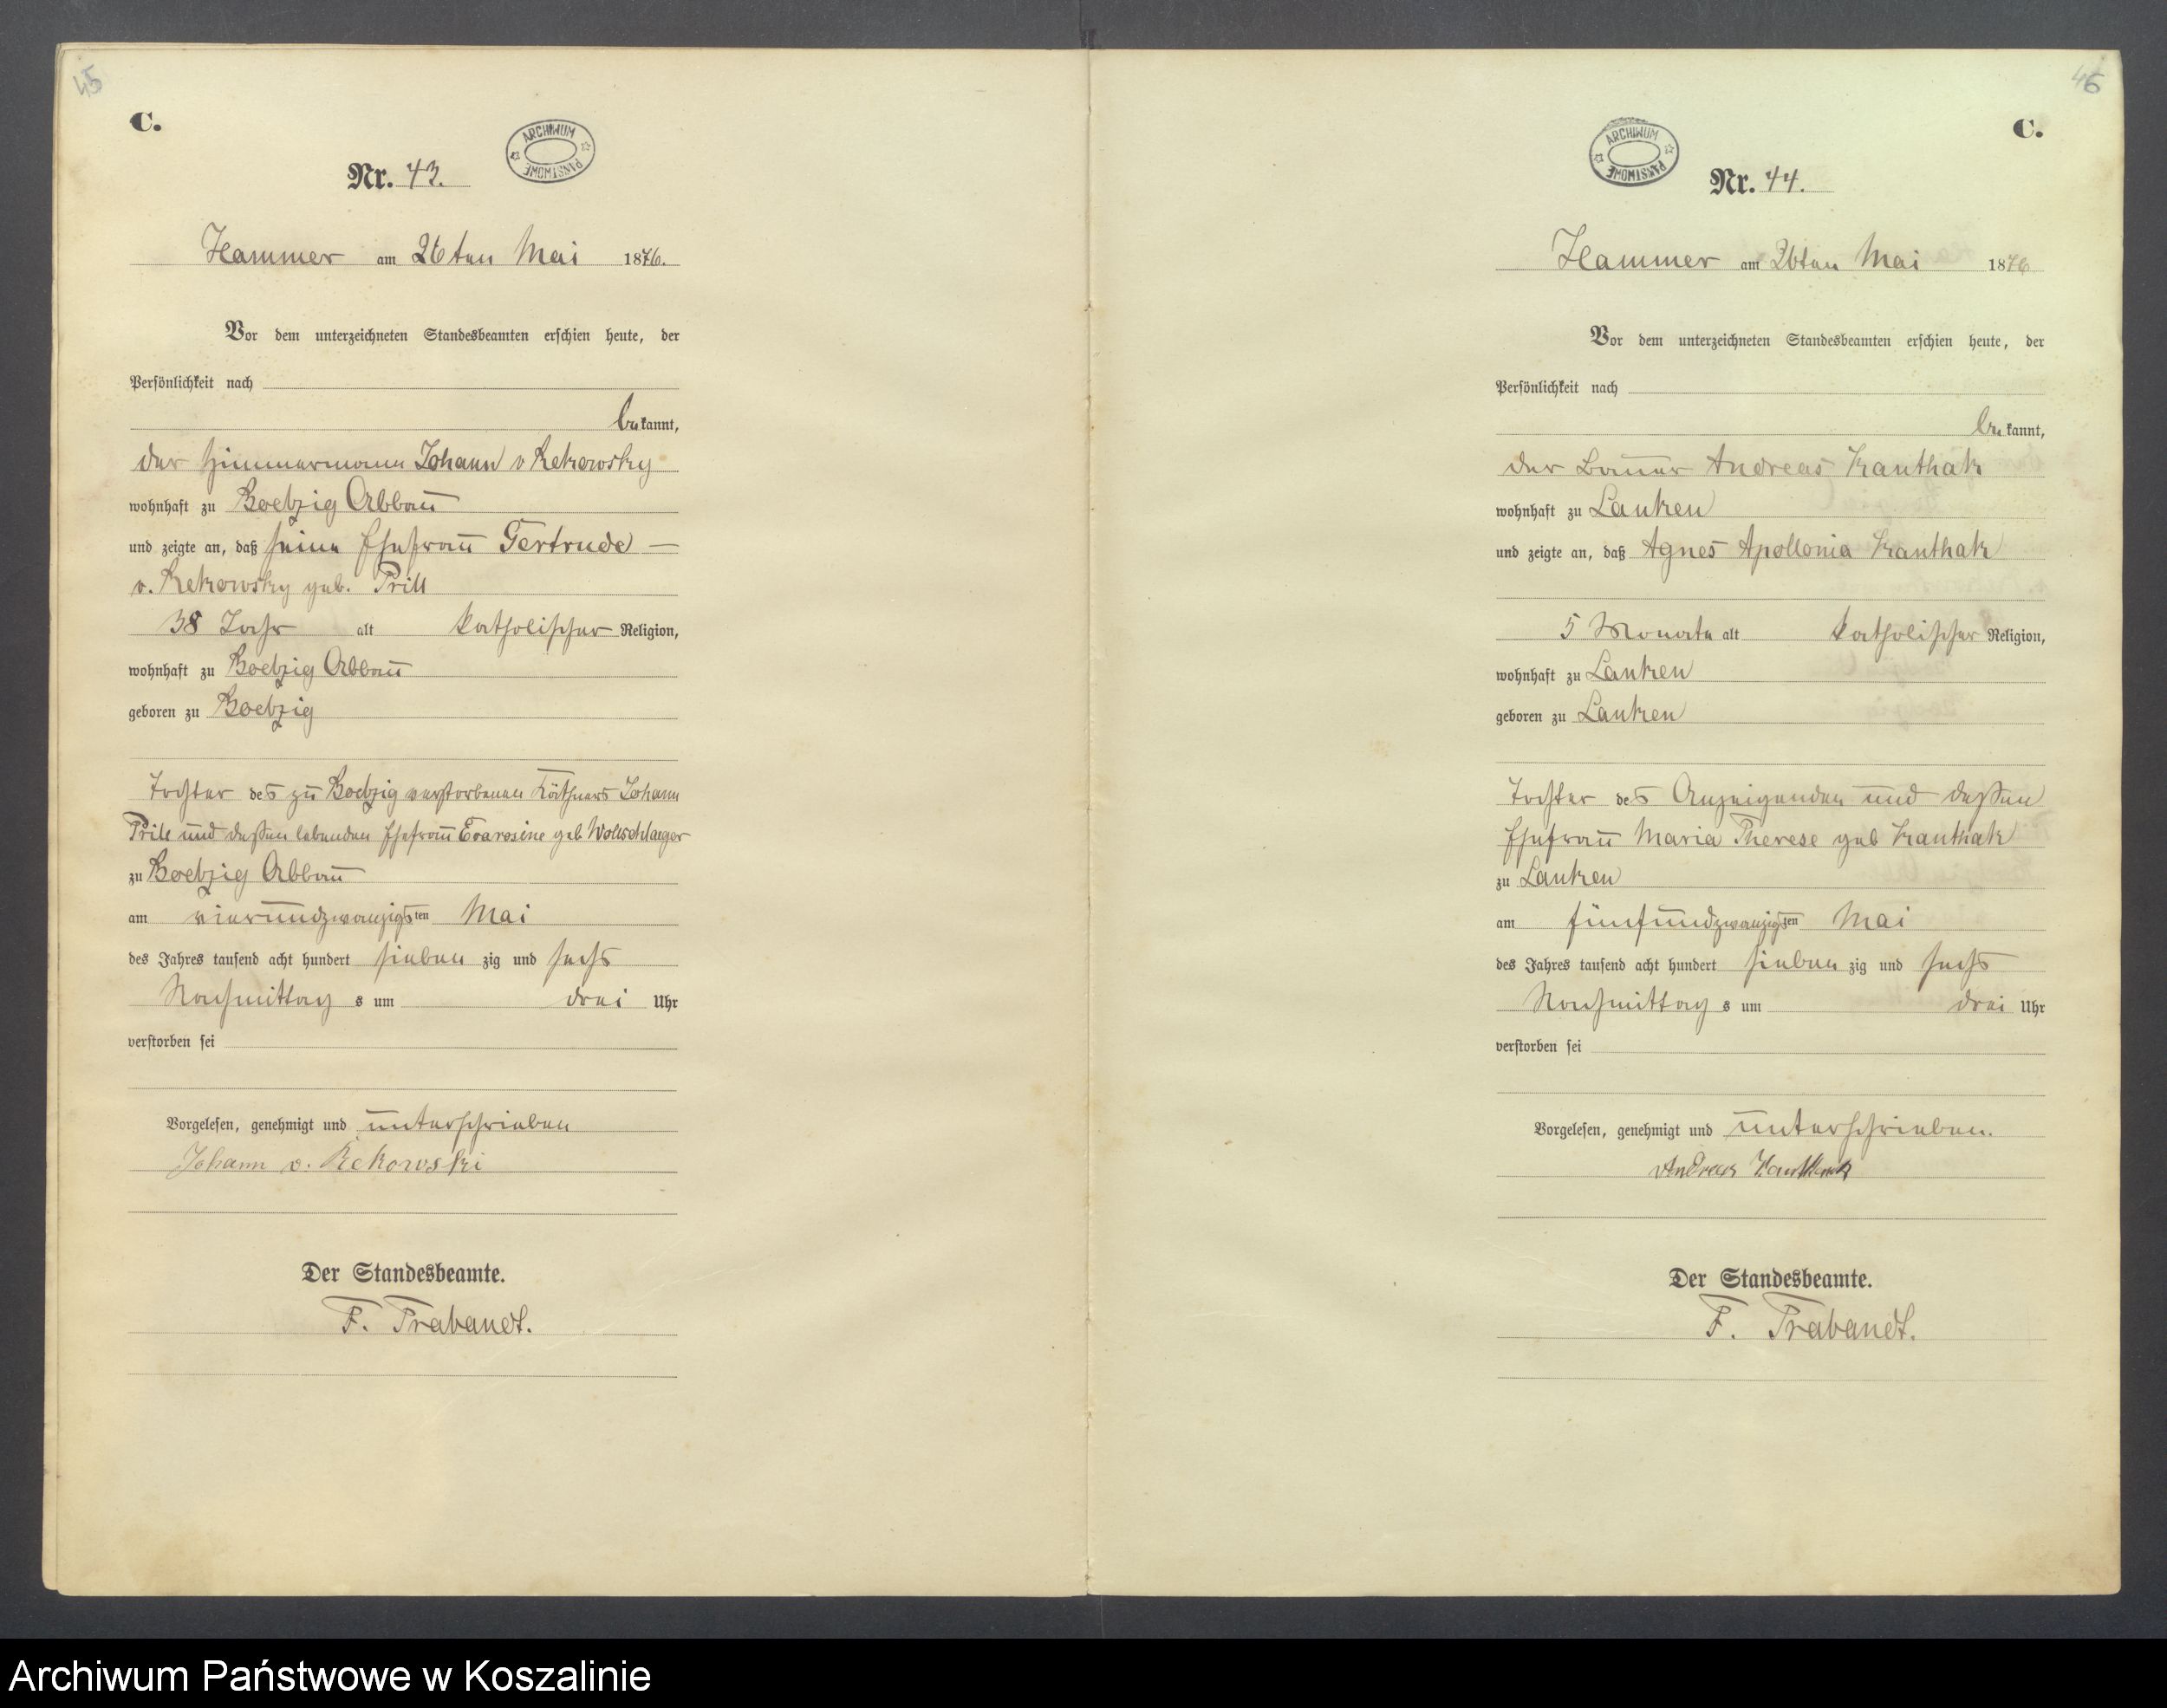 45
C.
ARCHIWUM PAŃSTWOWE
Nr. 43.
Hammer am 26ten Mai 1876.
Vor dem unterzeichneten Standesbeamten erschien heute, der
Persönlichkeit nach
bekannt,
der Zimmermann Johann v Rekowsky
wohnhaft zu Boetzig Abbau
und zeigte an, daß seine Ehefrau Gertrude —
v. Rekowsky geb. Prill
38 Jahr alt katholischer Religion,
wohnhaft zu Boetzig Abbau
geboren zu Boetzig
Tochter des zu Boetzig verstorbenen Käthners Johann
Prill und dessen lebenden Ehefrau Evarosine geb Wollschlaeger
zu Boetzig Abbau
am vierundzwanzigsten Mai
des Jahres tausend acht hundert sieben zig und sechs
Nachmittag s um drei Uhr
verstorben sei
Vorgelesen, genehmigt und unterschrieben
Johann v. Rekowski
Der Standesbeamte.
F. Trabandt.
46
C.
ARCHIWUM PAŃSTWOWE
Nr. 44.
Hammer am 26ten Mai 1876
Vor dem unterzeichneten Standesbeamten erschien heute, der
Persönlichkeit nach
bekannt,
der Bauer Andreas Kanthak
wohnhaft zu Lanken
und zeigte an, daß Agnes Apollonia Kanthak
5 Monate alt katholischer Religion,
wohnhaft zu Lanken
geboren zu Lanken
Tochter des Anzeigenden und dessen
Ehefrau Maria Therese geb Kanthak
zu Lanken
am fünfundzwanzigsten Mai
des Jahres tausend acht hundert sieben zig und sechs
Nachmittag s um drei Uhr
verstorben sei
Vorgelesen, genehmigt und unterschrieben.
Andreas Kanthak
Der Standesbeamte.
F. Trabandt.
Archiwum Państwowe w Koszalinie